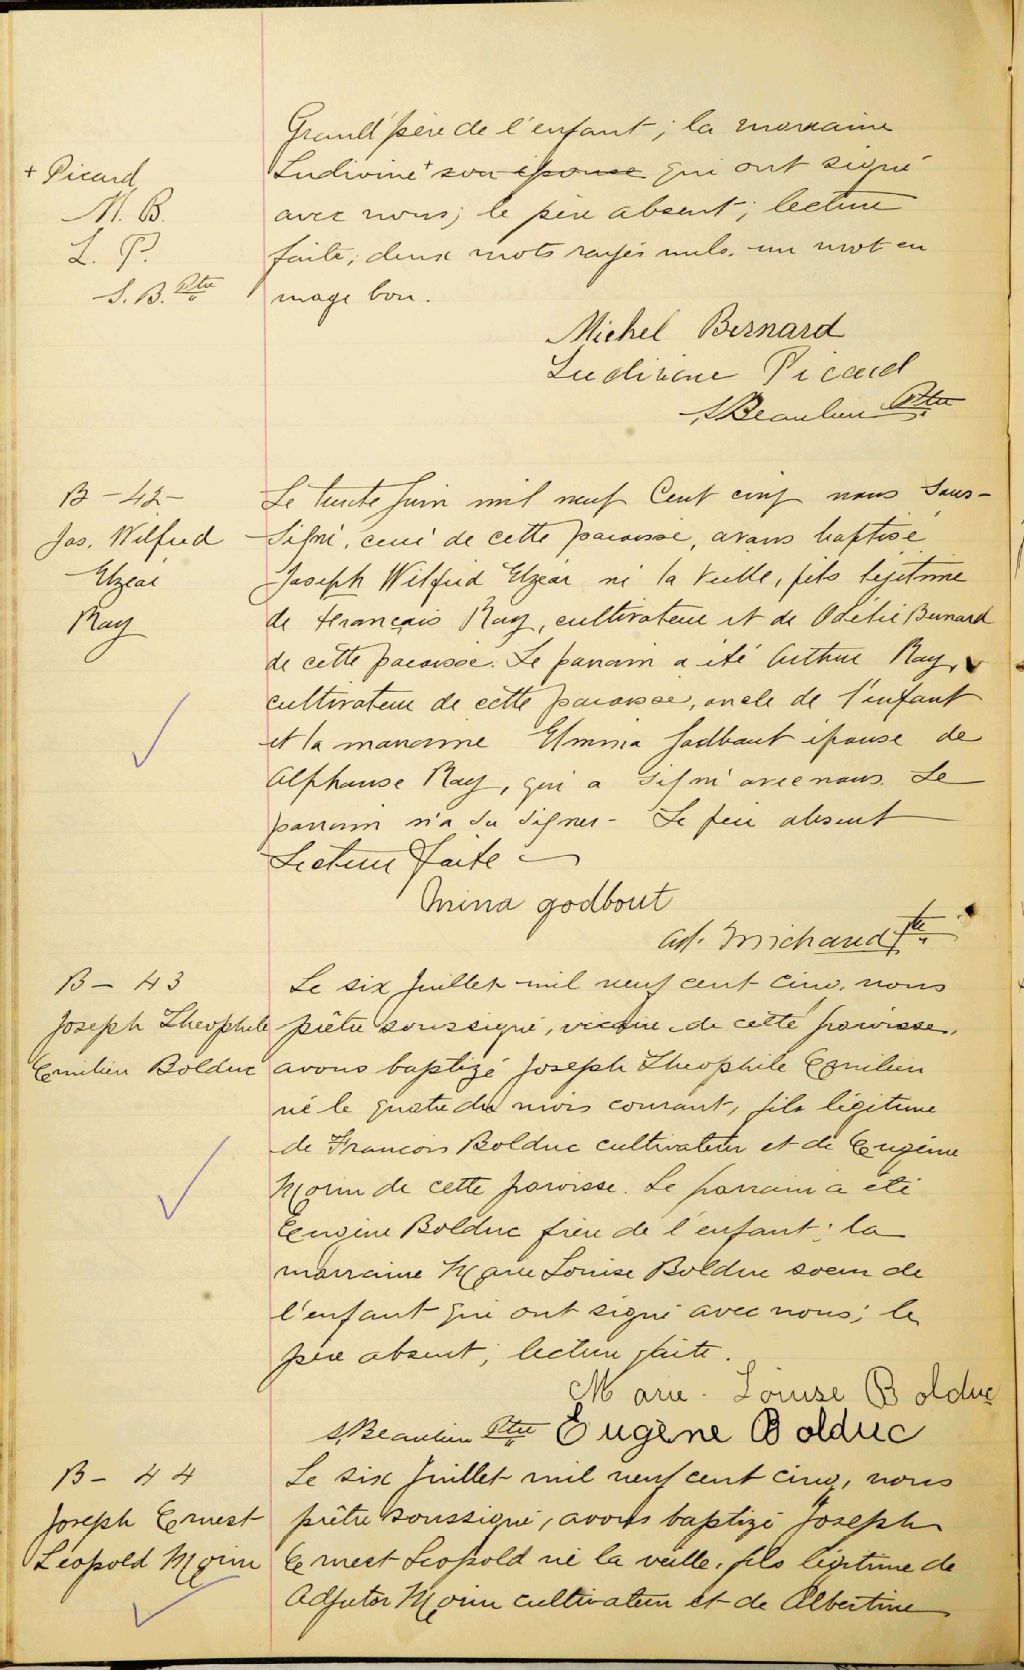 Grand'père de l'enfant ; la marraine
+ Picard
Ludivine + son épouse qui ont signé
M. B.
avec nous ; le père absent ; lecture
L. P.
faite ; deux mots rayés nuls. un mot en
S. B. Ptre
mage bon.
Michel Bernard
Ludivine Picard
S. Beaulieu Ptre
B - 42 -
Le trente Juin mil neuf Cent cinq nous sous-
Jos. Wilfrid
signé, curé de cette paroisse, avons baptisé
Elzéar
Joseph Wilfrid Elzéar né la veille, fils légitime
Ray
de François Ray, cultivateur et de Odélie Bernard
de cette paroisse. Le parrain a été Arthur Ray,
cultivateur de cette paroisse, oncle de l'enfant
et la marraine Elmina Godbout épouse de
Alphonse Ray, qui a signé avec nous. Le
parrain n'a su signer - Le père absent
Lecture faite
Mina godbout
Ad. Michaud Ptre
B - 43
Le six Juillet mil neuf cent cinq, nous
Joseph Theophile
prêtre soussigné, vicaire de cette paroisse,
Emilien Bolduc
avons baptizé Joseph Theophile Emilien
né le quatre du mois courant, fils légitime
de Francois Bolduc cultivateur et de Eugénie
Morin de cette paroisse. Le parrain a été
Eugène Bolduc frère de l'enfant ; la
marraine Marie Louise Bolduc soeur de
l'enfant qui ont signé avec nous ; le
père absent ; lecture faite.
Marie - Louise Bolduc
S. Beaulieu Ptre Eugène Bolduc
B - 44
Le six Juillet mil neuf cent cinq, nous
Joseph Ernest
prêtre soussigné, avons baptizé Joseph
Léopold Morin
Ernest Léopold né la veille, fils légitime de
Adjutor Morin cultivateur et de Albertine